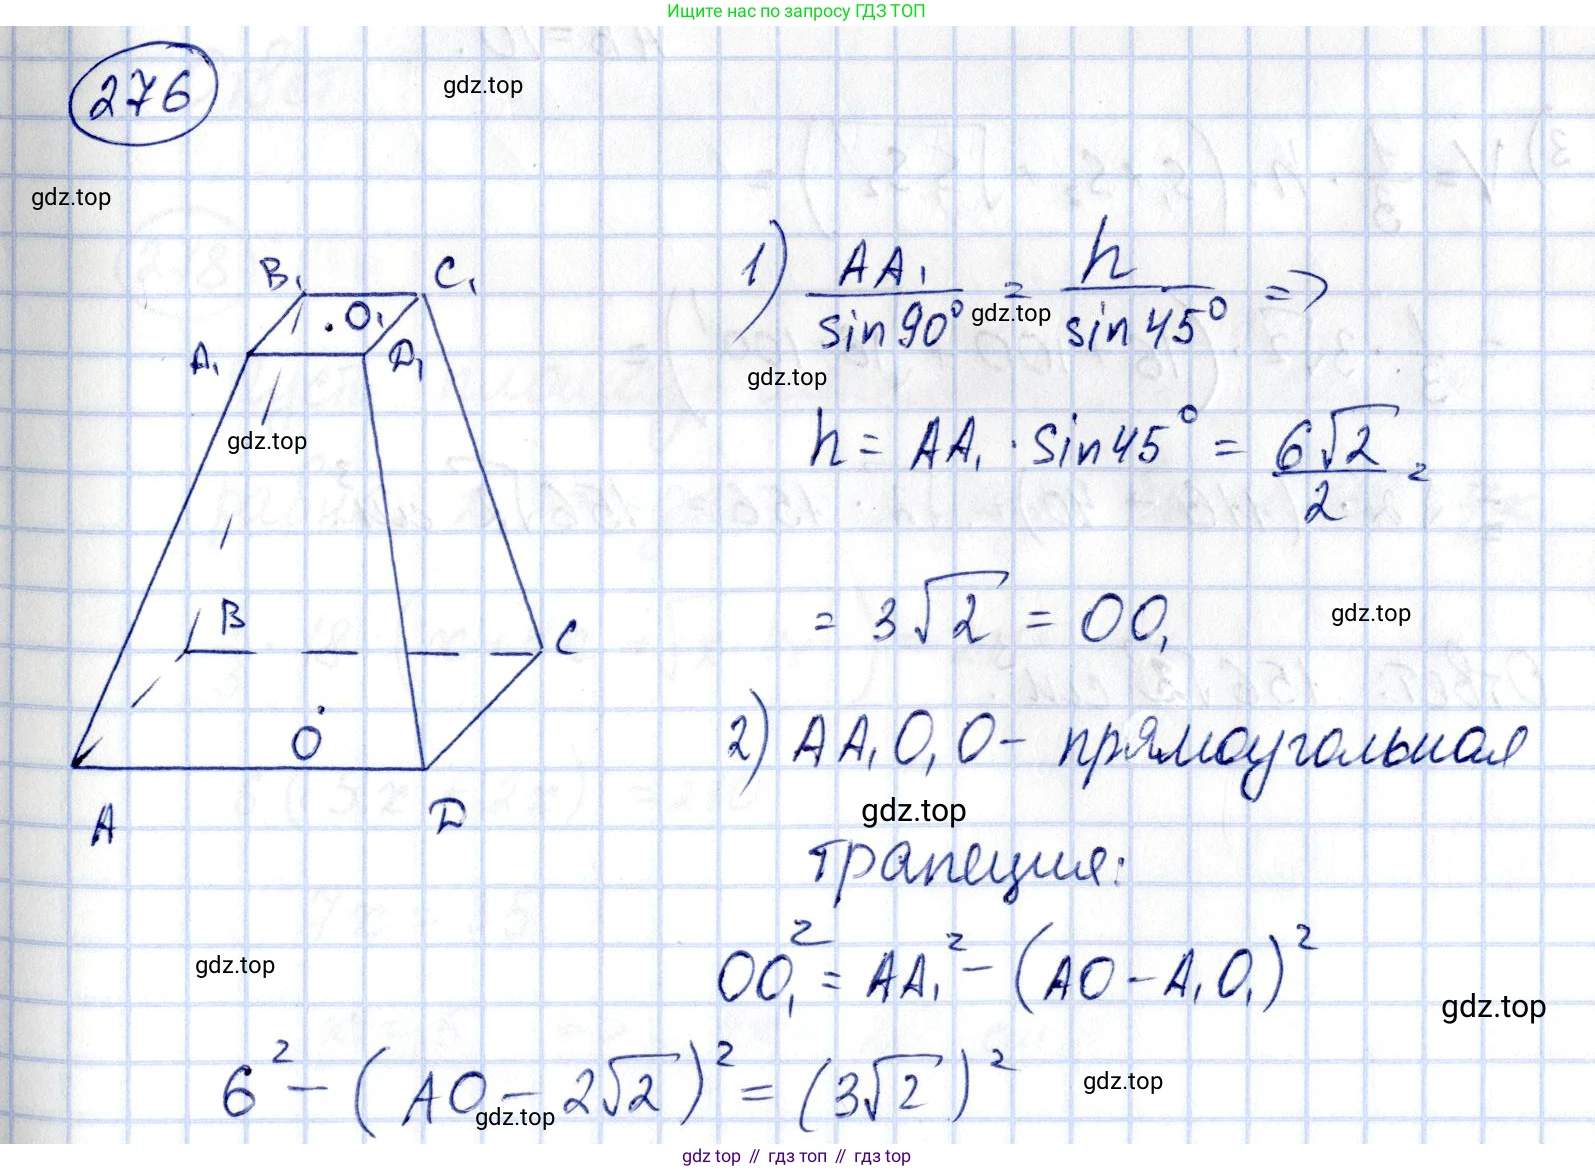 Ищите нас по запросу ГДЗ ТОП
276
gdz.top
gdz.top
B₁ C₁
O₁
A₁ D₁
gdz.top
B
C
O
A D
1) AA₁/sin90° = h/sin45° =>
gdz.top
gdz.top
h = AA₁ · sin45° = 6√2/2 =
= 3√2 = OO₁
gdz.top
2) AA₁O₁O - прямоугольная
gdz.top
трапеция:
OO₁² = AA₁² - (AO - A₁O₁)²
gdz.top
gdz.top
6² - (AO - 2√2)² = (3√2)²
gdz.top
gdz.top
gdz.top // гдз топ // гдз.top